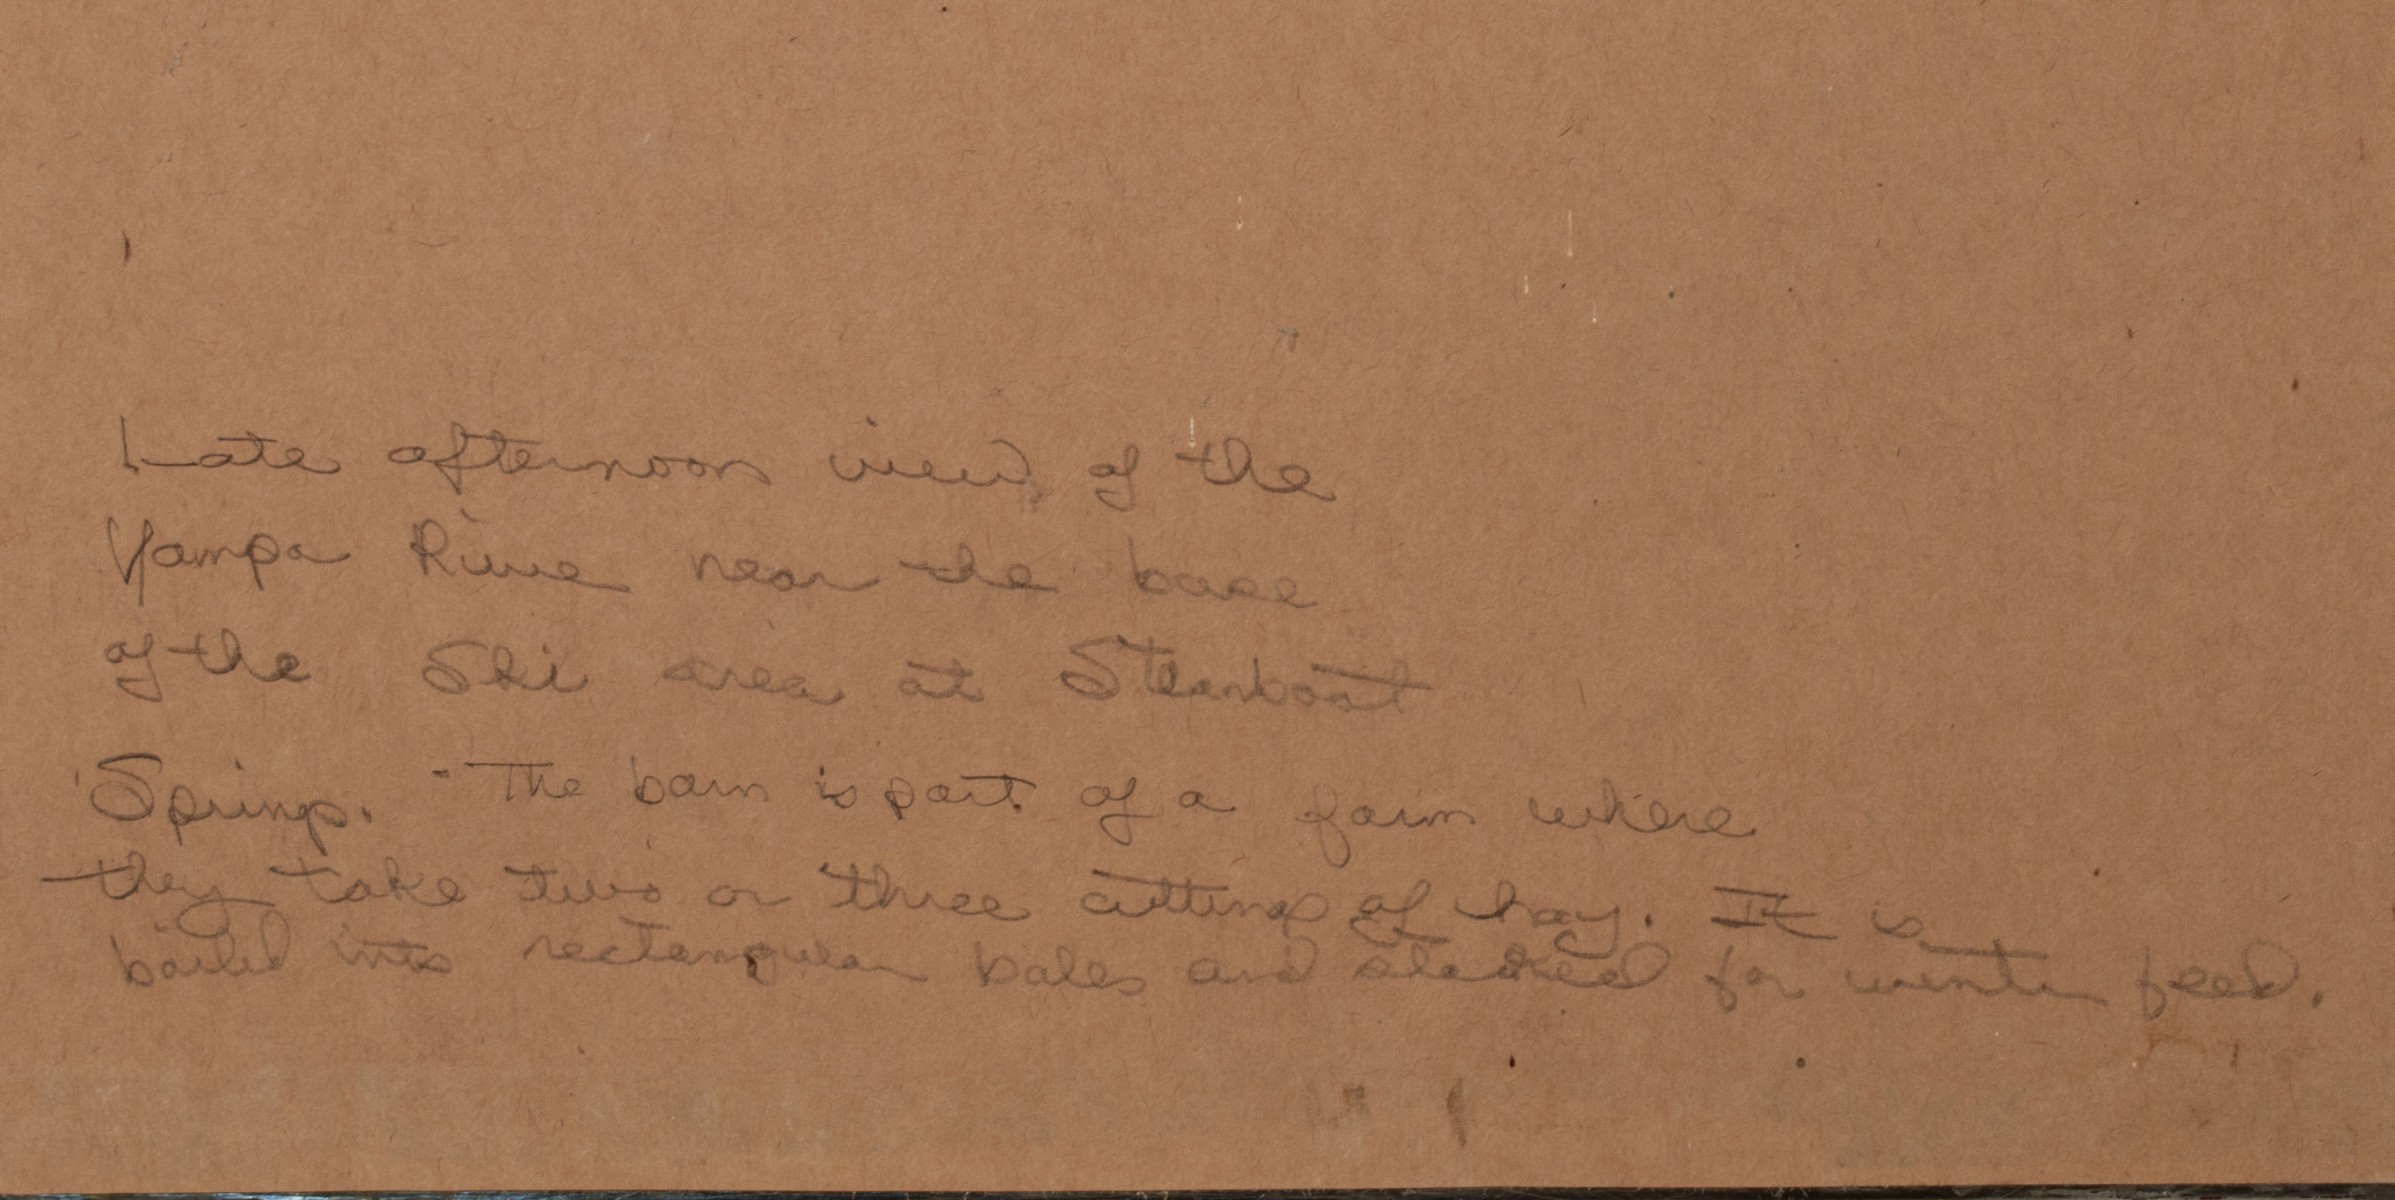 Late afternoon view of the
Yampa River near the base
of the Ski area at Steamboat
Springs. - The barn is part of a farm where
they take two or three cuttings of hay. It is
bailed into rectangular bales and stacked for winter feed.